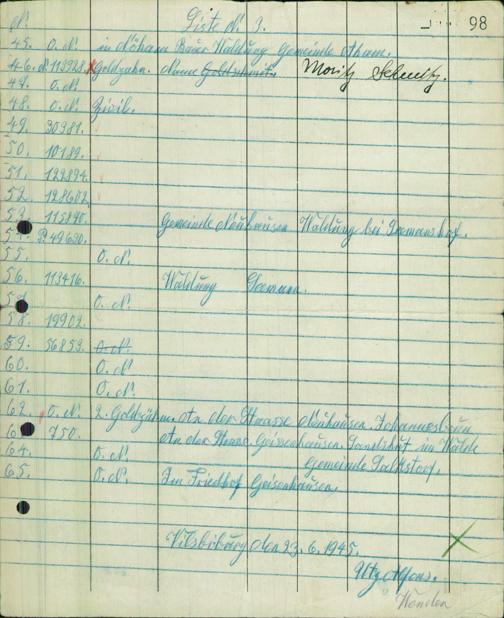 98
N. Liste N. 3.
45. O. N. in Aöham Bauer Waldung Gemeinde Aham.
46. N. 113928. x Goldzahn. Name Goldschmit. Moritz Schmitz.
47. O. N.
48. O. N. Zivil.
49. 30981.
50. 10189.
51. 129894.
52. 128602.
53. 115898. Gemeinde Neuhausen Waldung bei
54. P. 49630.
55. O. N.
56. 113416. Waldung
57. O. N.
58. 19902.
59. 56853. O. N.
60. O. N.
61. O. N.
62. O. N. 2. Goldzähne. An der Strasse Neuhausen Johannesbrun
63. 750. An der Strase Geisenhausen Landshut im Walde
64. O. N. Gemeinde
65. O. N. Im Friedhof Geisenhausen,
Vilsbiburg den 23. 6. 1945.
Utz Alfons.